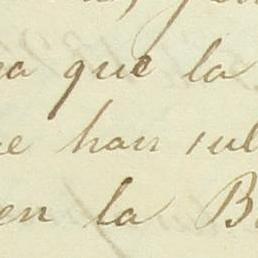 a que la
e han sul
en la B